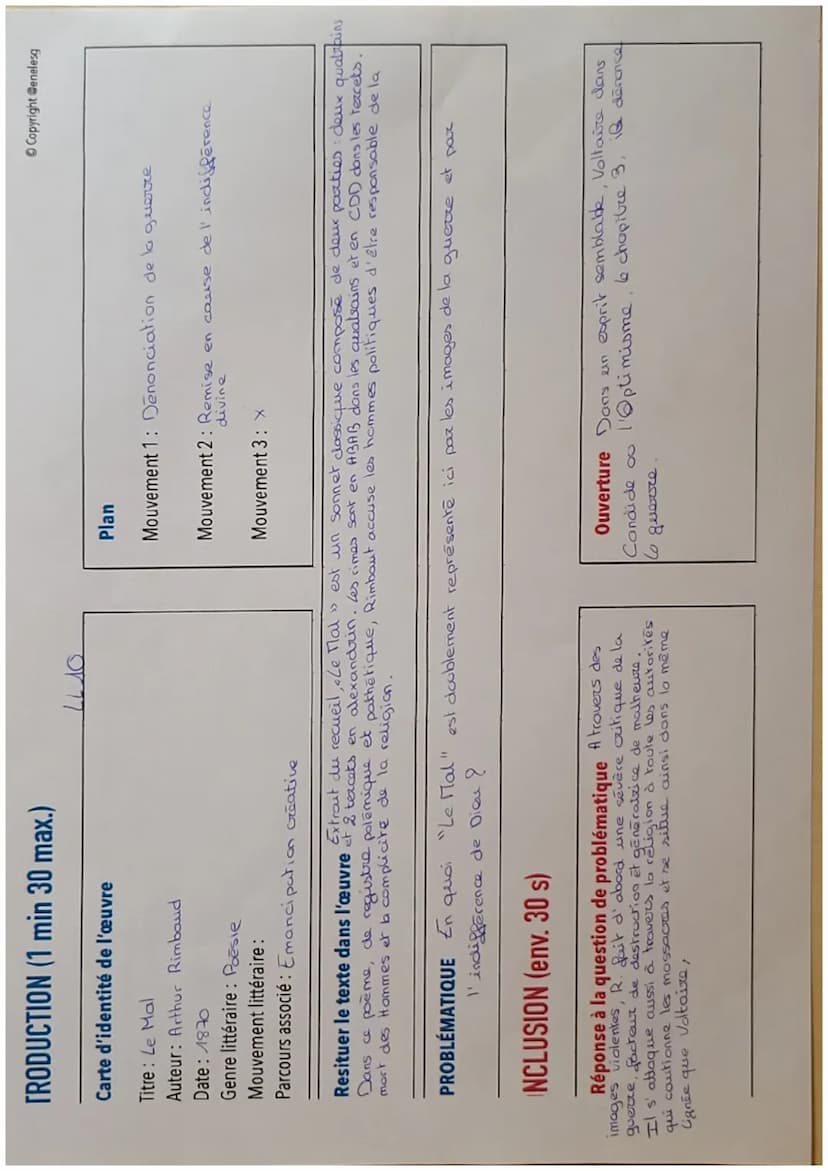 © Copyright @enelesg
TRODUCTION (1 min 30 max.)
LL 10
Carte d'identité de l'œuvre
Titre : Le Mal
Auteur : Arthur Rimbaud
Date : 1870
Genre littéraire : Poésie
Mouvement littéraire :
Parcours associé : Emancipation créative
Plan
Mouvement 1 : Dénonciation de la guerre
Mouvement 2 : Remise en cause de l'indifférence
divine
Mouvement 3 : x
Resituer le texte dans l'œuvre Extrait du recueil, « Le Mal » est un sonnet classique composé de deux parties : deux quatrains
et 2 tercets en alexandrin. Les rimes sont en ABAB dans les quatrains et en CDD dans les tercets.
Dans ce poème, de registre polémique et pathétique, Rimbaut accuse les hommes politiques d'être responsable de la
mort des Hommes et la complicité de la religion.
PROBLÉMATIQUE En quoi "Le Mal" est doublement représenté ici par les images de la guerre et par
l'indifférence de Dieu ?
NCLUSION (env. 30 s)
Réponse à la question de problématique A travers des
images violentes, R. fait d'abord une sévère critique de la
guerre, facteur de destruction et génératrice de malheurs.
Il s'attaque aussi à travers la religion à toute les autorités
qui cautionne les massacres et se situe ainsi dans la même
lignée que Voltaire,
Ouverture Dans un esprit semblable, Voltaire dans
Candide ou l'Optimisme, le chapitre 3, il dénonce
la guerre.